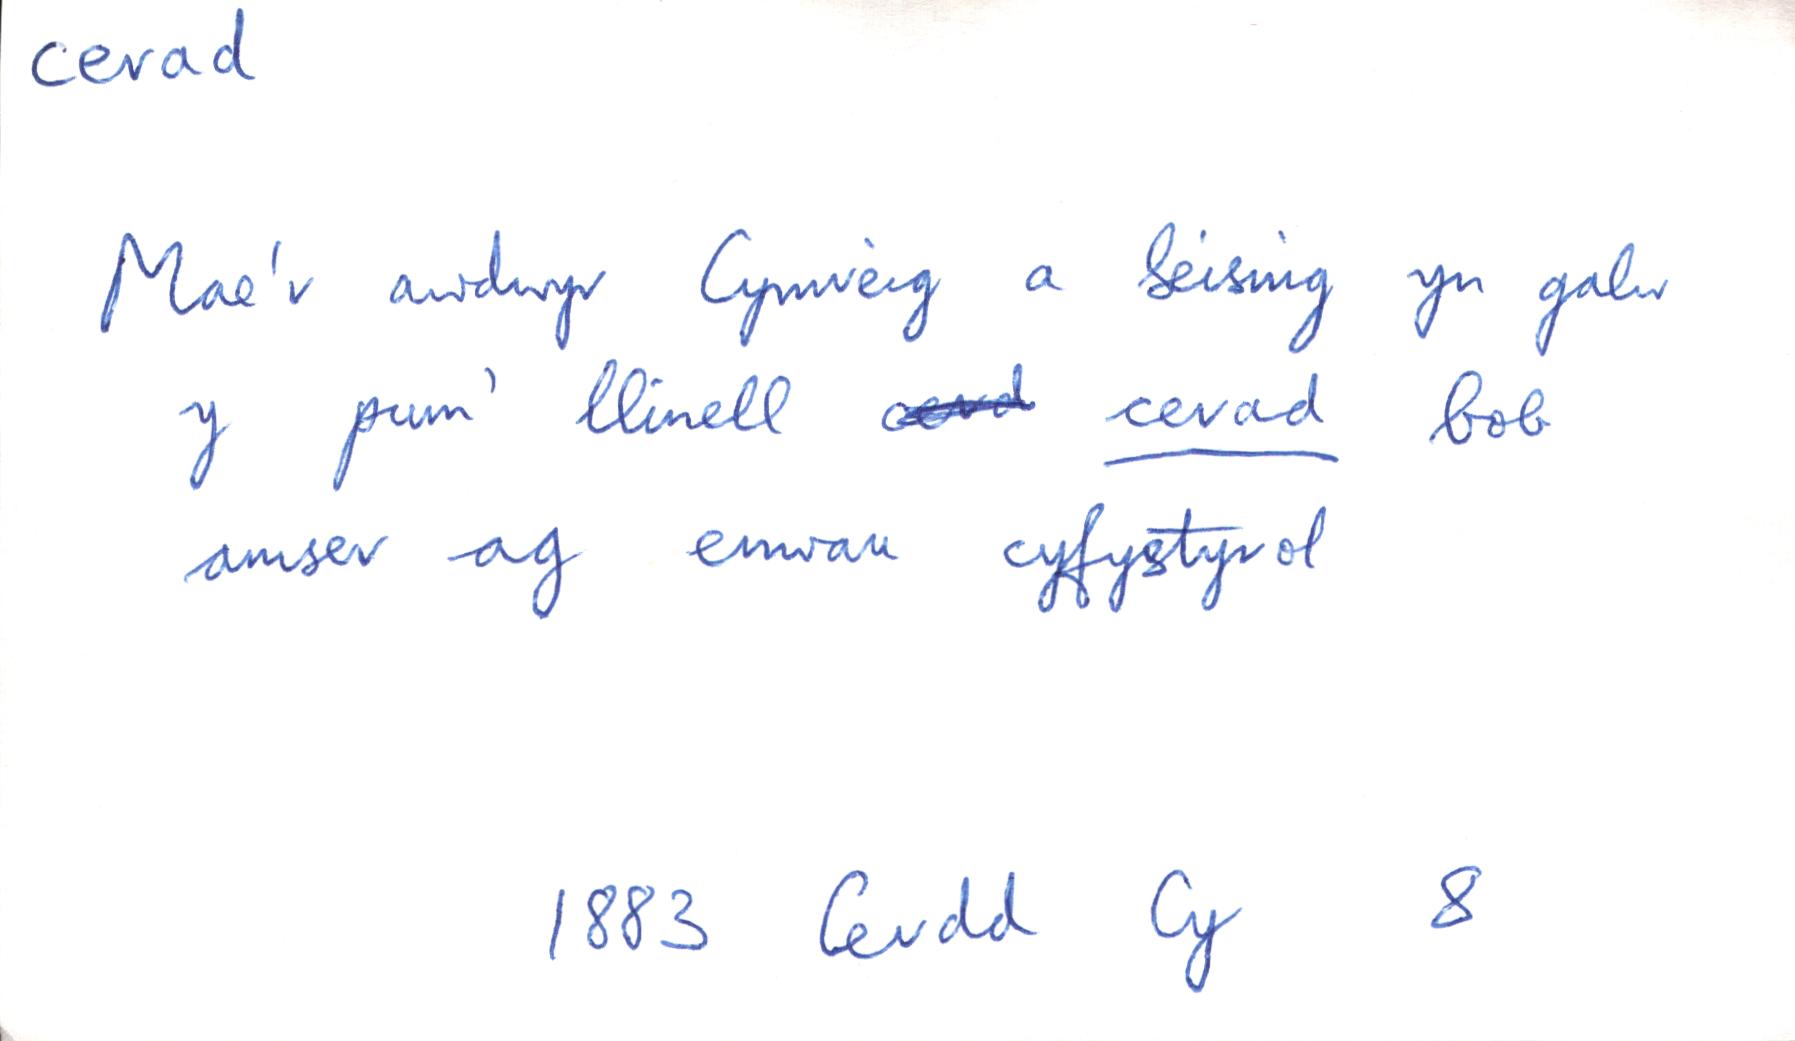 cerad
Mae'r awdwyr Cymreig a Seisnig yn galw
y pum' llinell cerad bob
amser ag enwau cyfystyrol
1883 Cerdd Cy 8